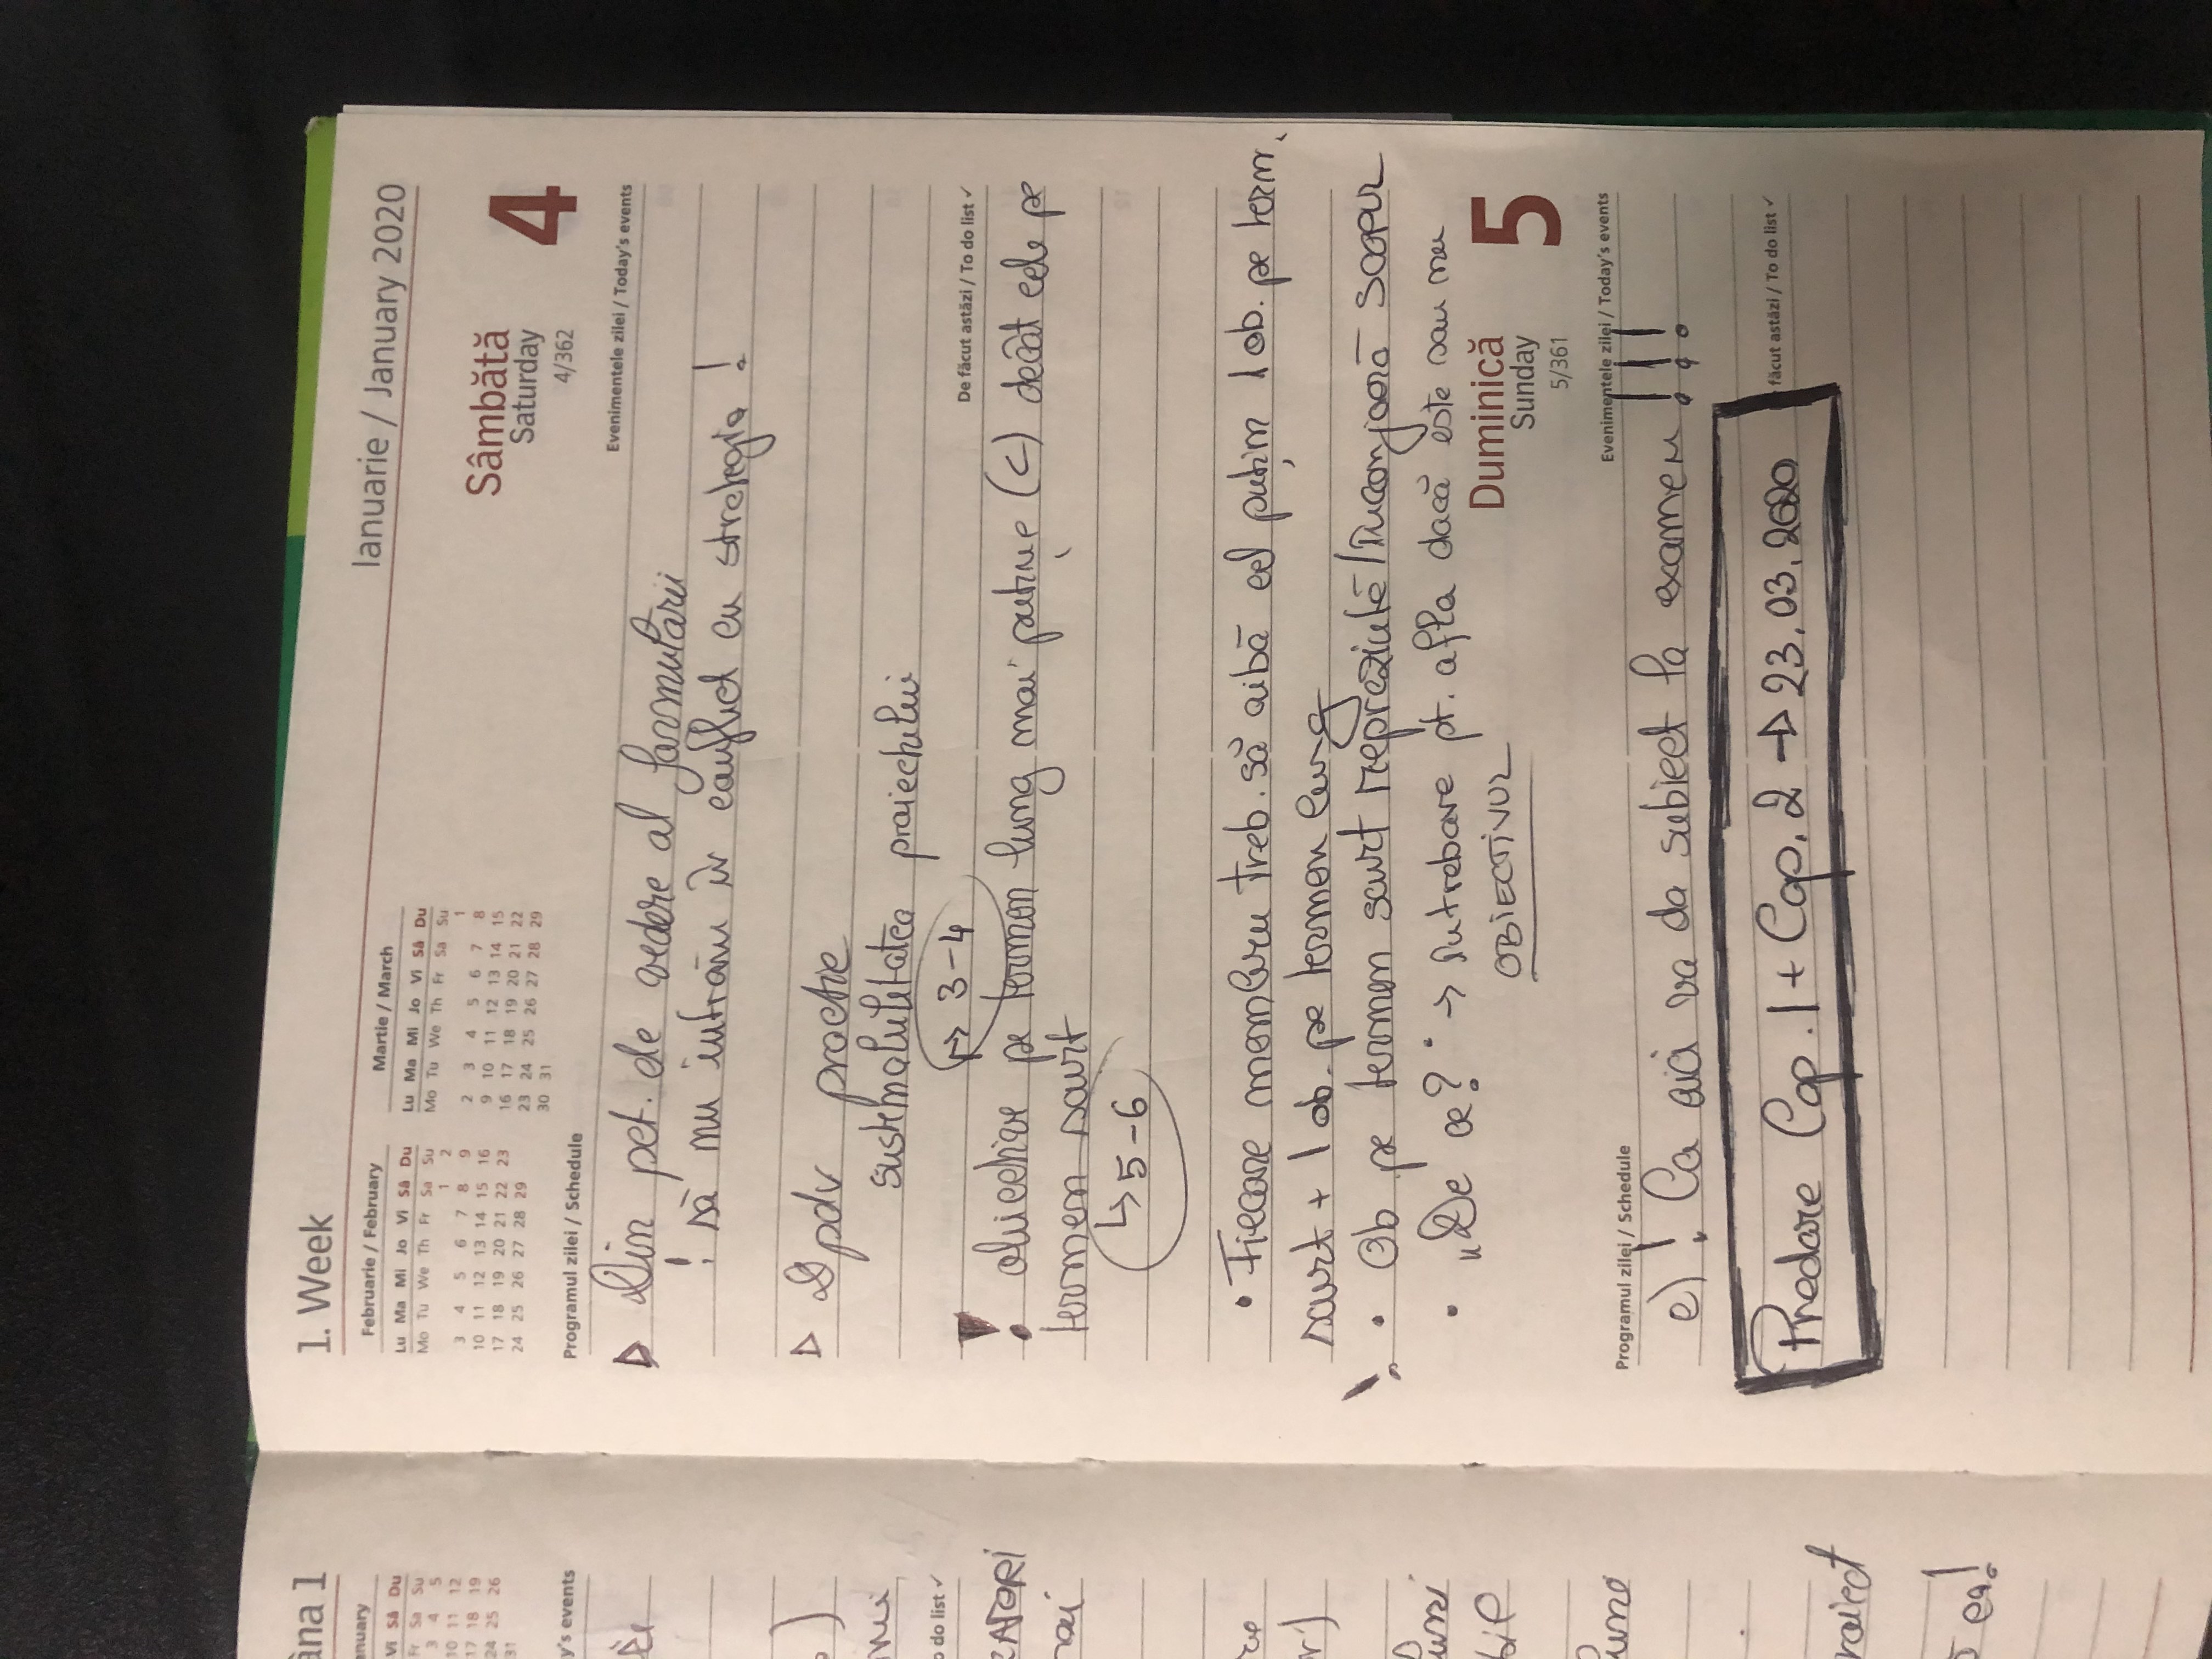 âna 1
anuary
Vi Sâ Du
Fr Sa Su
3 4 5
10 11 12
17 18 19
24 25 26
31
y's events
o do list ✓
raiect
ea!
1. Week
Ianuarie / January 2020
Februarie / February
Lu Ma Mi Jo Vi Sâ Du
Mo Tu We Th Fr Sa Su
1 2
3 4 5 6 7 8 9
10 11 12 13 14 15 16
17 18 19 20 21 22 23
24 25 26 27 28 29
Martie / March
Lu Ma Mi Jo Vi Sâ Du
Mo Tu We Th Fr Sa Su
1
2 3 4 5 6 7 8
9 10 11 12 13 14 15
16 17 18 19 20 21 22
23 24 25 26 27 28 29
30 31
Sâmbătă 4
Saturday
4/362
Programul zilei / Schedule
Evenimentele zilei / Today's events
Din pct. de vedere al formulării
! să nu intrăm în conflict cu strategia !
Dpdv practic
proiectului
↳ 3-4
De făcut astăzi / To do list ✓
! obiective pe termen lung mai puține (<) decât cele pe
termen scurt
↳ 5-6
• Fiecare membru treb. să aibă cel puțin 1 ob. pe term.
scurt + 1 ob. pe termen lung
! • Ob pe termen scurt reprezintă/înconjoară SCOPUL
• „De ce?" → întrebare pt. afla dacă este sau nu
OBIECTIVUL
Duminică 5
Sunday
5/361
Programul zilei / Schedule
Evenimentele zilei / Today's events
e) ! Ca aici va da subiect la examen !!!
Predare Cap. 1 + Cap. 2 → 23.03.2020
făcut astăzi / To do list ✓